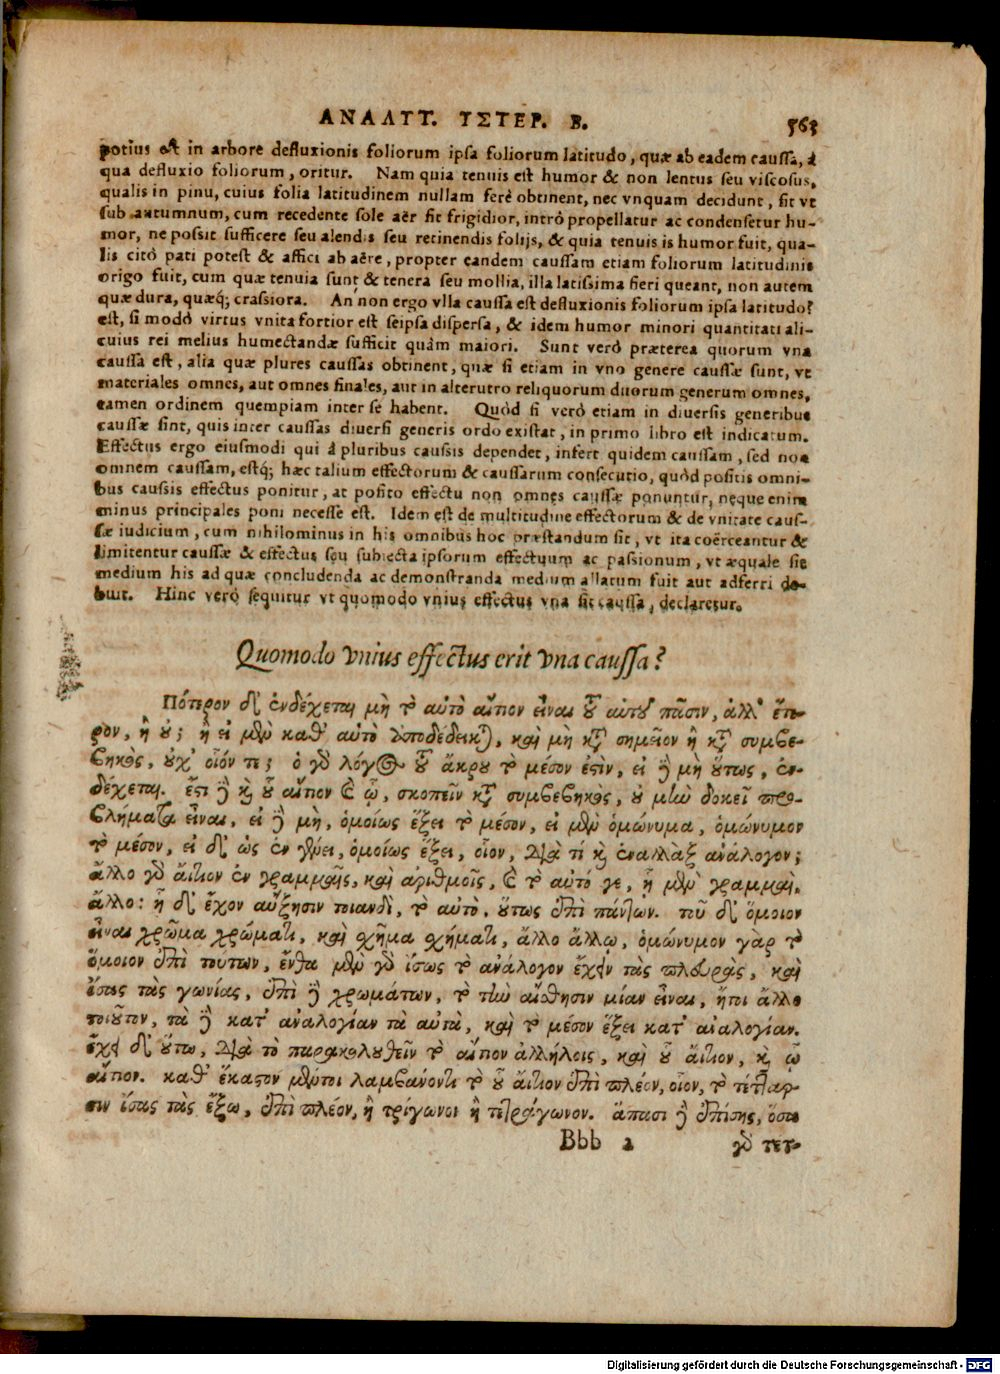 ΑΝΑΛΥΤ. ΥΣΤΕΡ. Β. 563
potius est in arbore defluxionis foliorum ipsa foliorum latitudo, quæ ab eadem caussa, à
qua defluxio foliorum, oritur. Nam quia tenuis est humor & non lentus seu viscosus,
qualis in pinu, cuius folia latitudinem nullam ferè obtinent, nec vnquam decidunt, fit vt
sub autumnum, cum recedente sole aër fit frigidior, intrò propellatur ac condensetur hu-
mor, ne possit sufficere seu alendis seu retinendis folijs, & quia tenuis is humor fuit, qua-
lis citò pati potest & affici ab aëre, propter eandem caussam etiam foliorum latitudinis
origo fuit, cum quæ tenuia sunt & tenera seu mollia, illa latissima fieri queant, non autem
quæ dura, quæq; crassiora. An non ergo vlla caussa est defluxionis foliorum ipsa latitudo?
est, si modò virtus vnita fortior est seipsa dispersa, & idem humor minori quantitati ali-
cuius rei melius humectandæ sufficit quàm maiori. Sunt verò præterea quorum vna
caussa est, alia quæ plures caussas obtinent, quæ si etiam in vno genere caussæ sunt, vt
materiales omnes, aut omnes finales, aut in alterutro reliquorum duorum generum omnes,
tamen ordinem quempiam inter se habent. Quòd si verò etiam in diuersis generibus
caussæ sint, quis inter caussas diuersi generis ordo existat, in primo libro est indicatum.
Effectus ergo eiusmodi qui à pluribus caussis dependet, infert quidem caussam, sed non
omnem caussam, estq; hæc talium effectorum & caussarum consecutio, quòd positis omni-
bus caussis effectus ponitur, at posito effectu non omnes caussæ ponuntur, neque enim
minus principales poni necesse est. Idem est de multitudine effectorum & de vnitate caus-
sæ iudicium, cum nihilominus in his omnibus hoc præstandum sit, vt ita coërceantur &
limitentur caussæ & effectus seu subiecta ipsorum effectuum ac passionum, vt æquale sit
medium his ad quæ concludenda ac demonstranda medium allatum fuit aut adferri de-
buit. Hinc verò sequitur vt quomodo vnius effectus vna sit caussa, declaretur.
Quomodo vnius effectus erit vna caussa?
Πότερον δ' ἐνδέχεται μὴ τὸ αὐτὸ αἴτιον εἶναι τοῦ αὐτοῦ πᾶσιν, ἀλλ' ἕτε-
ρον, ἢ οὔ; ἢ εἰ μὲν καθ' αὑτὸ ἀποδέδεικται, καὶ μὴ κατὰ σημεῖον ἢ κατὰ συμβε-
βηκὸς, οὐχ' οἷόν τε; ὁ γὰρ λόγος τοῦ ἄκρου τὸ μέσον ἐστὶν, εἰ δὲ μὴ οὕτως, ἐν-
δέχεται. ἔστι δὲ καὶ οὗ αἴτιον καὶ ᾧ, σκοπεῖν κατὰ συμβεβηκὸς, οὐ μὴν δοκεῖ προ-
βλήματα εἶναι, εἰ δὲ μὴ, ὁμοίως ἕξει τὸ μέσον, εἰ μὲν ὁμώνυμα, ὁμώνυμον
τὸ μέσον, εἰ δ' ὡς ἐν γένει, ὁμοίως ἕξει, οἷον, διὰ τί καὶ ἐναλλὰξ ἀνάλογον;
ἄλλο γὰρ αἴτιον ἐν γραμμαῖς, καὶ ἀριθμοῖς, καὶ τὸ αὐτό γε, ᾗ μὲν γραμμαὶ,
ἄλλο: ᾗ δ' ἔχον αὔξησιν τοιανδὶ, τὸ αὐτὸ, οὕτως ἐπὶ πάντων. τοῦ δ' ὅμοιον
εἶναι χρῶμα χρώματι, καὶ σχῆμα σχήματι, ἄλλο ἄλλω, ὁμώνυμον γὰρ τὸ
ὅμοιον ἐπὶ τούτων, ἔνθα μὲν γὰρ ἴσως τὸ ἀνάλογον ἔχειν τὰς πλευρὰς, καὶ
ἴσας τὰς γωνίας, ἐπὶ δὲ χρωμάτων, τὸ τὴν αἴσθησιν μίαν εἶναι, ἤτοι ἄλλο
τοιοῦτον, τὰ δὲ κατ' ἀναλογίαν τὰ αὐτὰ, καὶ τὸ μέσον ἕξει κατ' ἀναλογίαν.
ἔχει δ' οὕτω, διὰ τὸ παρακολουθεῖν τὸ αἴτιον ἀλλήλοις, καὶ οὗ αἴτιον, καὶ ᾧ
αἴτιον. καθ' ἕκαστον μέντοι λαμβάνοντι τὸ οὗ αἴτιον ἐπὶ πλέον, οἷον, τὸ τέτταρ-
σιν ἴσας τὰς ἔξω, ἐπὶ πλέον, ἢ τρίγωνον ἢ τετράγωνον. ἅπασι δὲ ἐπίσης, ὅσα
Bbb 2 γὰρ τετ-
Digitalisierung gefördert durch die Deutsche Forschungsgemeinschaft - DFG